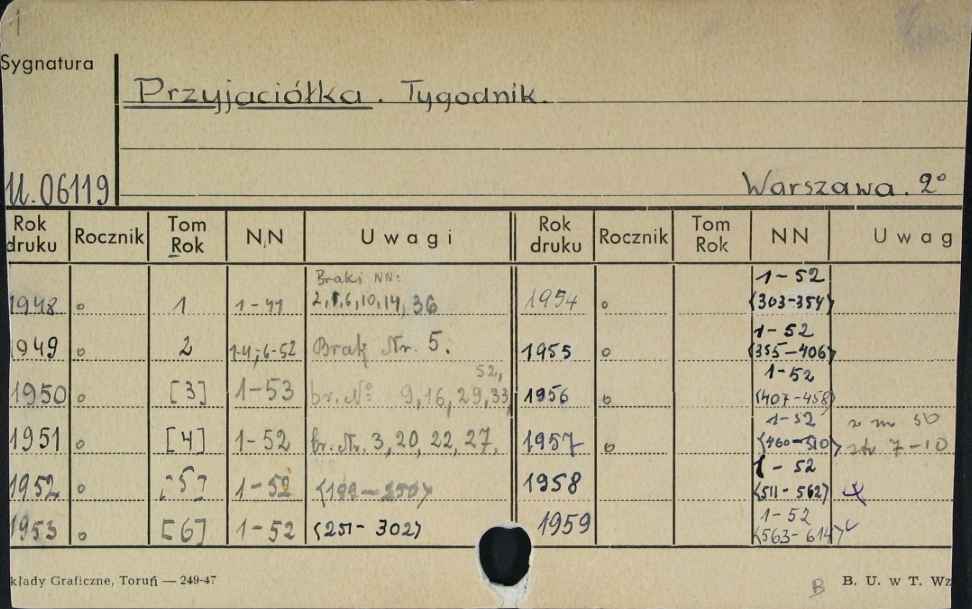 1
Sygnatura
Przyjaciółka. Tygodnik.
U.06119
Warszawa. 2°
Rok druku Rocznik Tom Rok NN Uwagi Rok druku Rocznik Tom Rok NN Uwag
Braki NN: 1-52
1948 o 1 1-41 10,14, 36 1954 o <303-354>
1-52
1949 o 2 1-4; 6-52 Brak Nr. 5. 1955 o <355-406>
52, 1-52
1950 o [3] 1-53 br. No 9,16,29,33, 1956 o <407-458>
1-52
1951 o [4] 1-52 br. Nr. 3,20,22,27, 1957 o <460-510> str 7-10
1-52
1952 o [5] 1-52 <199-250> 1958 <511-562>
1-52
1953 o [6] 1-52 <251-302> 1959 <563-614>
kłady Graficzne, Toruń — 249-47
B B. U. w T. Wz